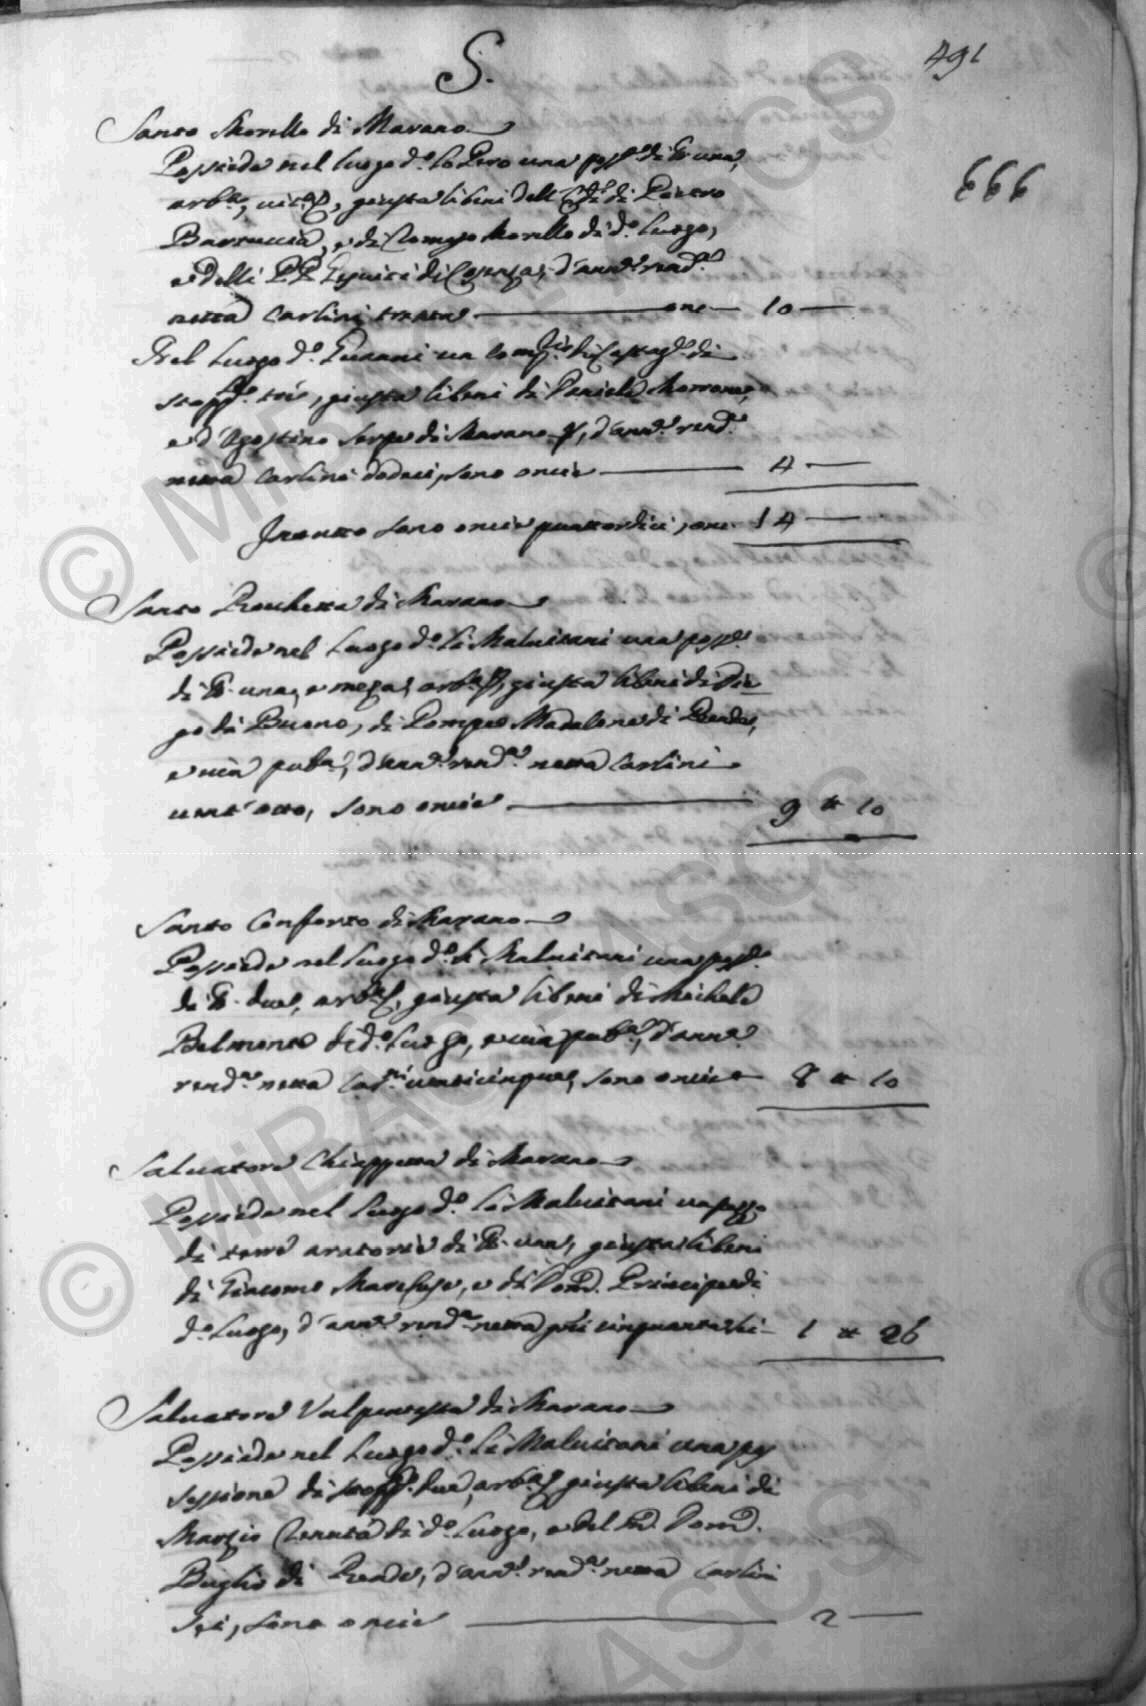 S.
491
666
Santo Morello di Marano
Possiede nel luogo d.o lo Pero una poss.e di Tt. una,
arb.ta, vit.ta, giusta li beni dell' Er.di di Pietro
Bartuccia, e di Tomaso Morello di d.o Luogo,
e delli PP. Gesuiti di Cosenza, d'ann.l rend.a
netta Carlini trenta onc. 10
Nel Luogo d.o un Com.to di Castag.e di
stopp.e trè, giusta li beni di Daniele Morrone,
e d'Agostino Serpe di Marano, d'ann.l rend.a
netta Carlini dodeci, sono oncie 4
In tutto sono oncie quattordici, onc. 14
Santo Rocchetta di Marano
Possiede nel Luogo d.o li Malvitani una poss.e
di Tt. una, e meza, arb.ta, giusta li beni di Die
go di Buono, di Pompeo Madalone di Rende,
e via pub.a, d'ann.l rend.a netta Carlini
vent'otto, sono oncie 9 tt 10
Santo Conforto di Marano
Possiede nel Luogo d.o li Malvitani una poss.e
di Tt. due, arb.ta, giusta li beni di Michele
Belmonte di d.o Luogo, e via pub.a, d'ann.l
rend.a netta Car.ni venticinque, sono oncie 8 tt 10
Salvatore Chiappetta di Marano
Possiede nel Luogo d.o li Malvitani un pezzo
di terre aratorie di Tt. una, giusta li beni
di Giacomo, e di Dom.co Principe di
d.o Luogo, d'ann.l rend.a netta g.na cinquantasei 1 tt 26
Salvatore Valpentesta di Marano
Possiede nel Luogo d.o li Malvitani una pos
sessione di stopp.e due, arb.ta giusta li beni di
Marzio Tenuta di d.o Luogo, e del M.co Dom.co
Buglio di Rende, d'ann.l rend.a netta Carlini
sei, sono oncie 2
© MiBAC - ASCS
© MiBAC - ASCS
ASCS